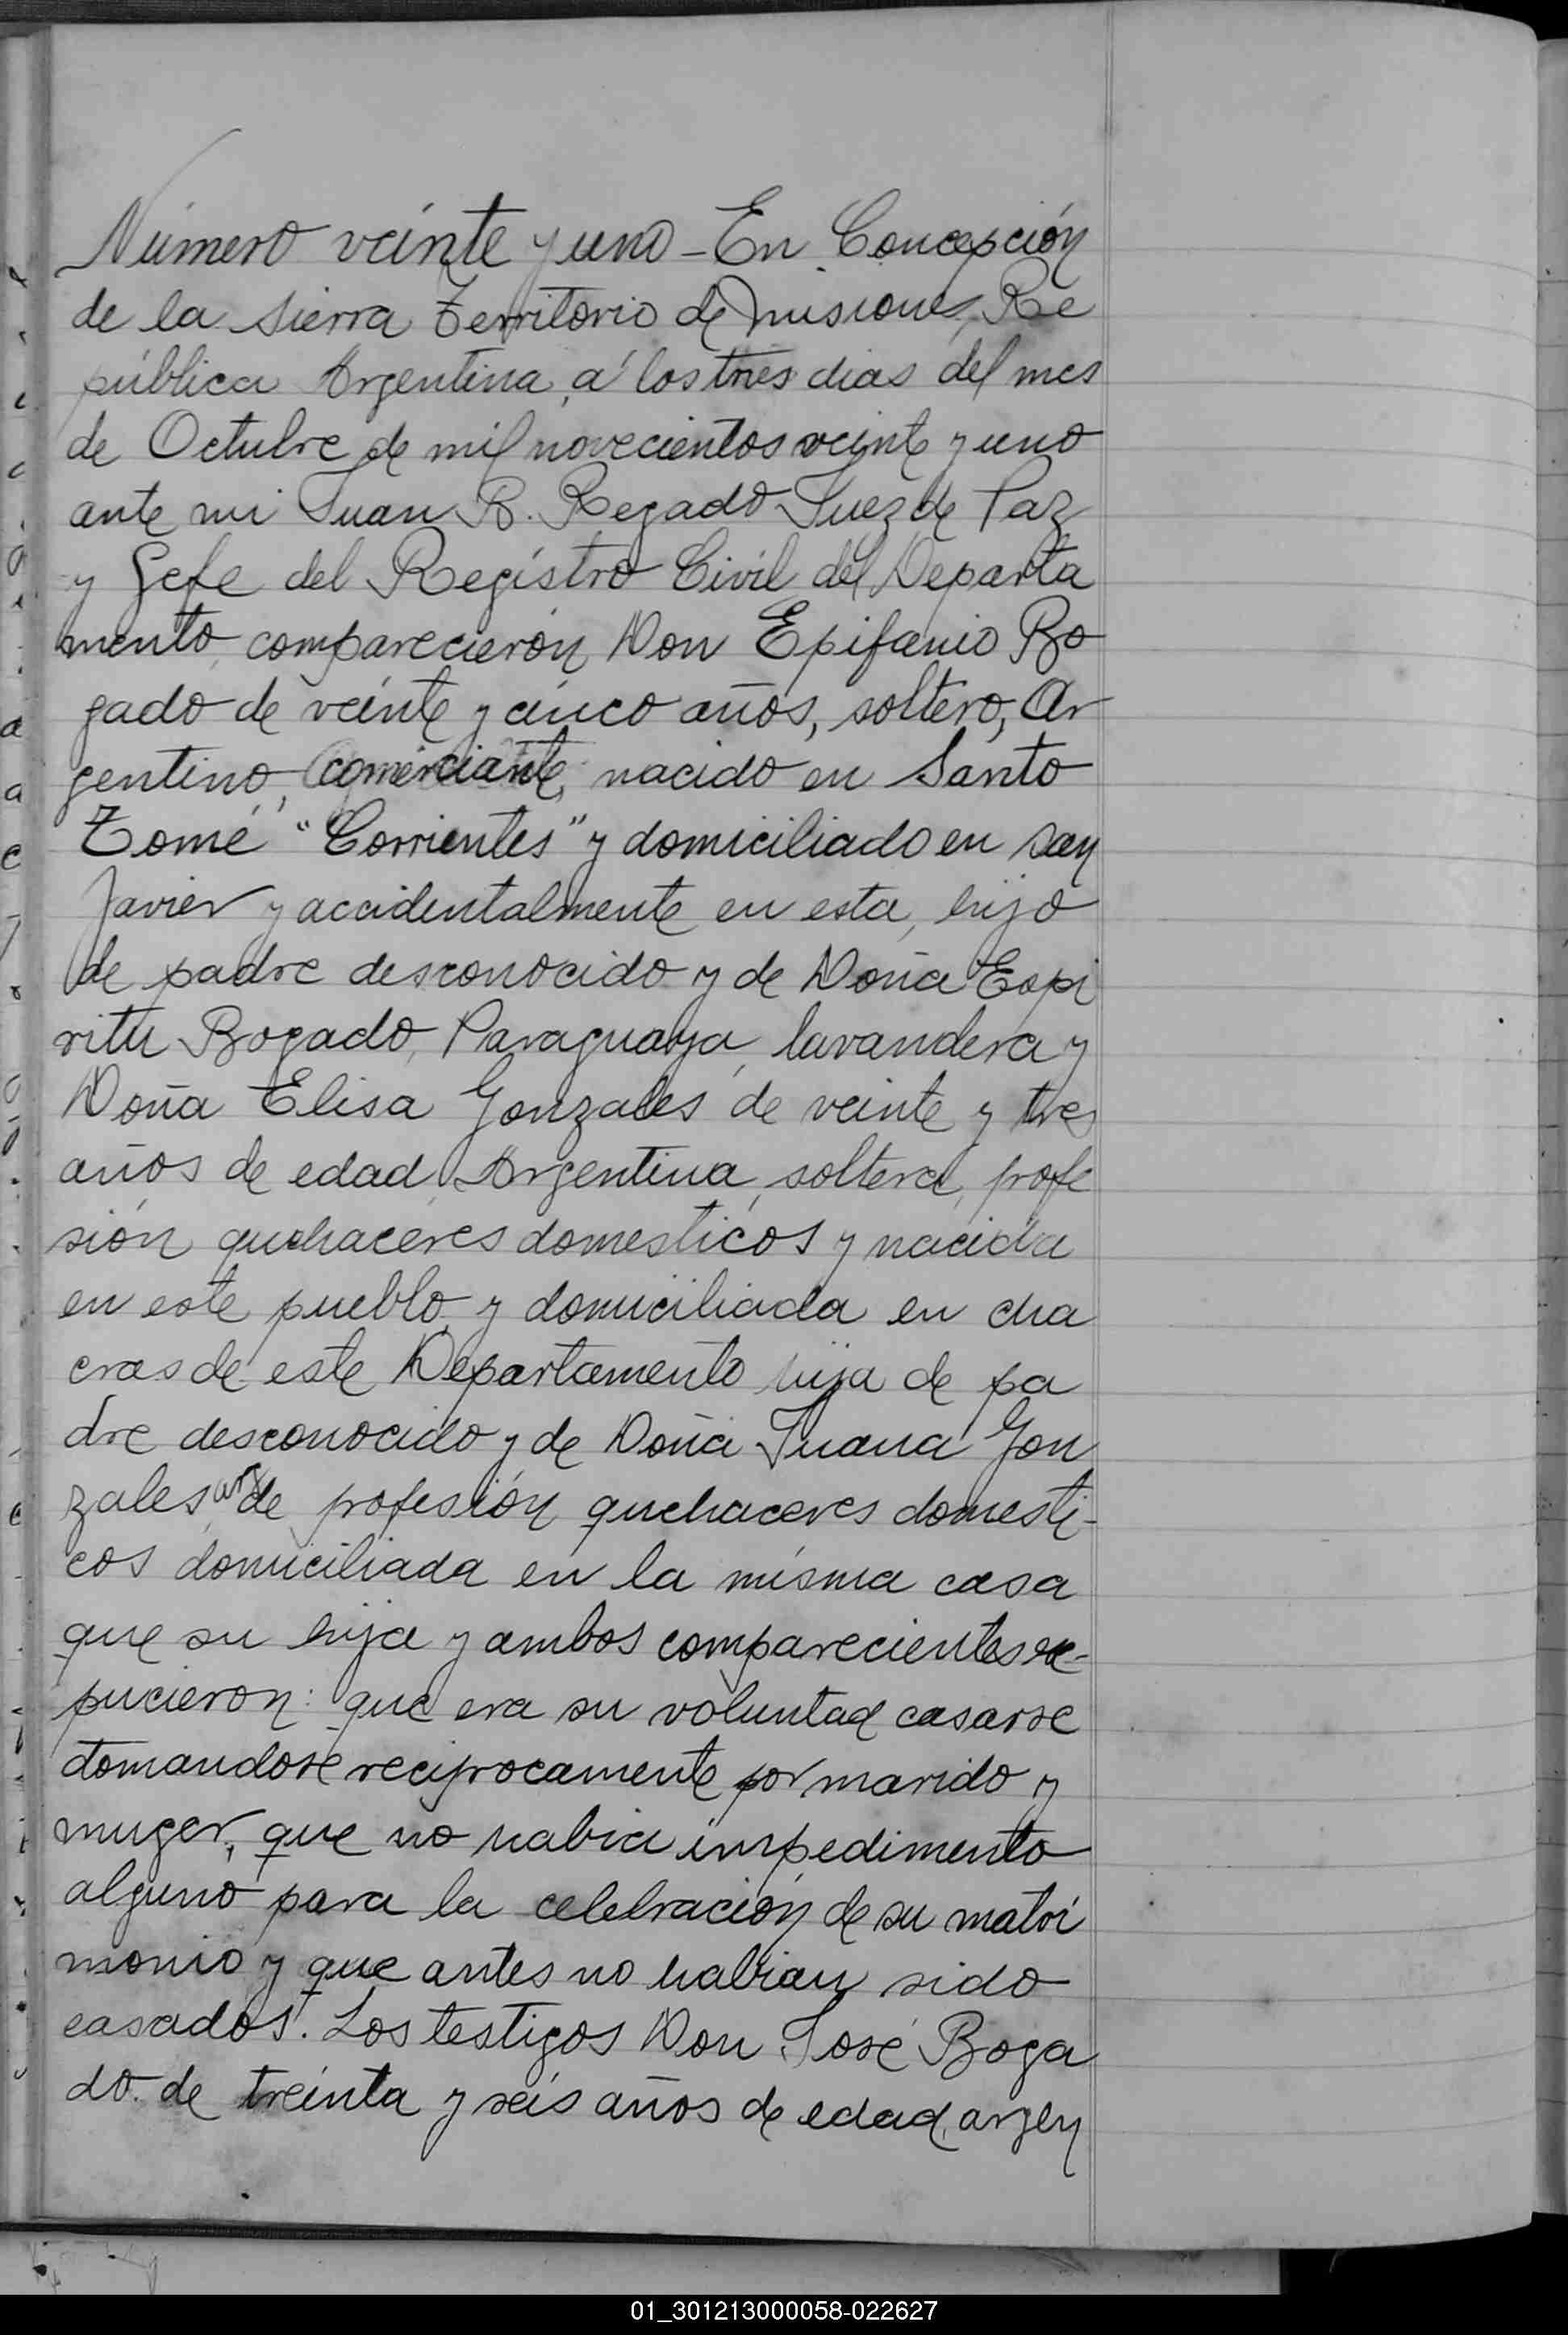 Número veinte y uno - En Concepción
de la Sierra Territorio de Misiones, Re
pública Argentina, á los tres dias del mes
de Octubre de mil novecientos veinte y uno
ante mi Juan B. Regado Juez de Paz
y Gefe del Registro Civil del Departa
mento comparecieron Don Epifanio Bo
gado de veinte y cinco años, soltero, Ar
gentino, comerciante, nacido en Santo
Tomé "Corrientes" y domiciliado en San
Javier y accidentalmente en esta, hijo
de padre desconocido y de Doña Espi
ritu Bogado, Paraguaya, lavandera y
Doña Elisa Gonzales de veinte y tres
años de edad, Argentina, soltera, profe
sión quehaceres domesticos y nacida
en este pueblo y domiciliada en cha
cras de este Departamento hija de pa
dre desconocido y de Doña Juana Gon
zales de profesión quehaceres domesti-
cos domiciliada en la misma casa
que su hija y ambos comparecientes ex-
pucieron: que era su voluntad casarse
tomandose reciprocamente por marido y
muger, que no habia impedimento
alguno para la celebración de su matri
monio y que antes no habian sido
casados. Los testigos Don José Boga
do de treinta y seis años de edad, argen
01_301213000058-022627